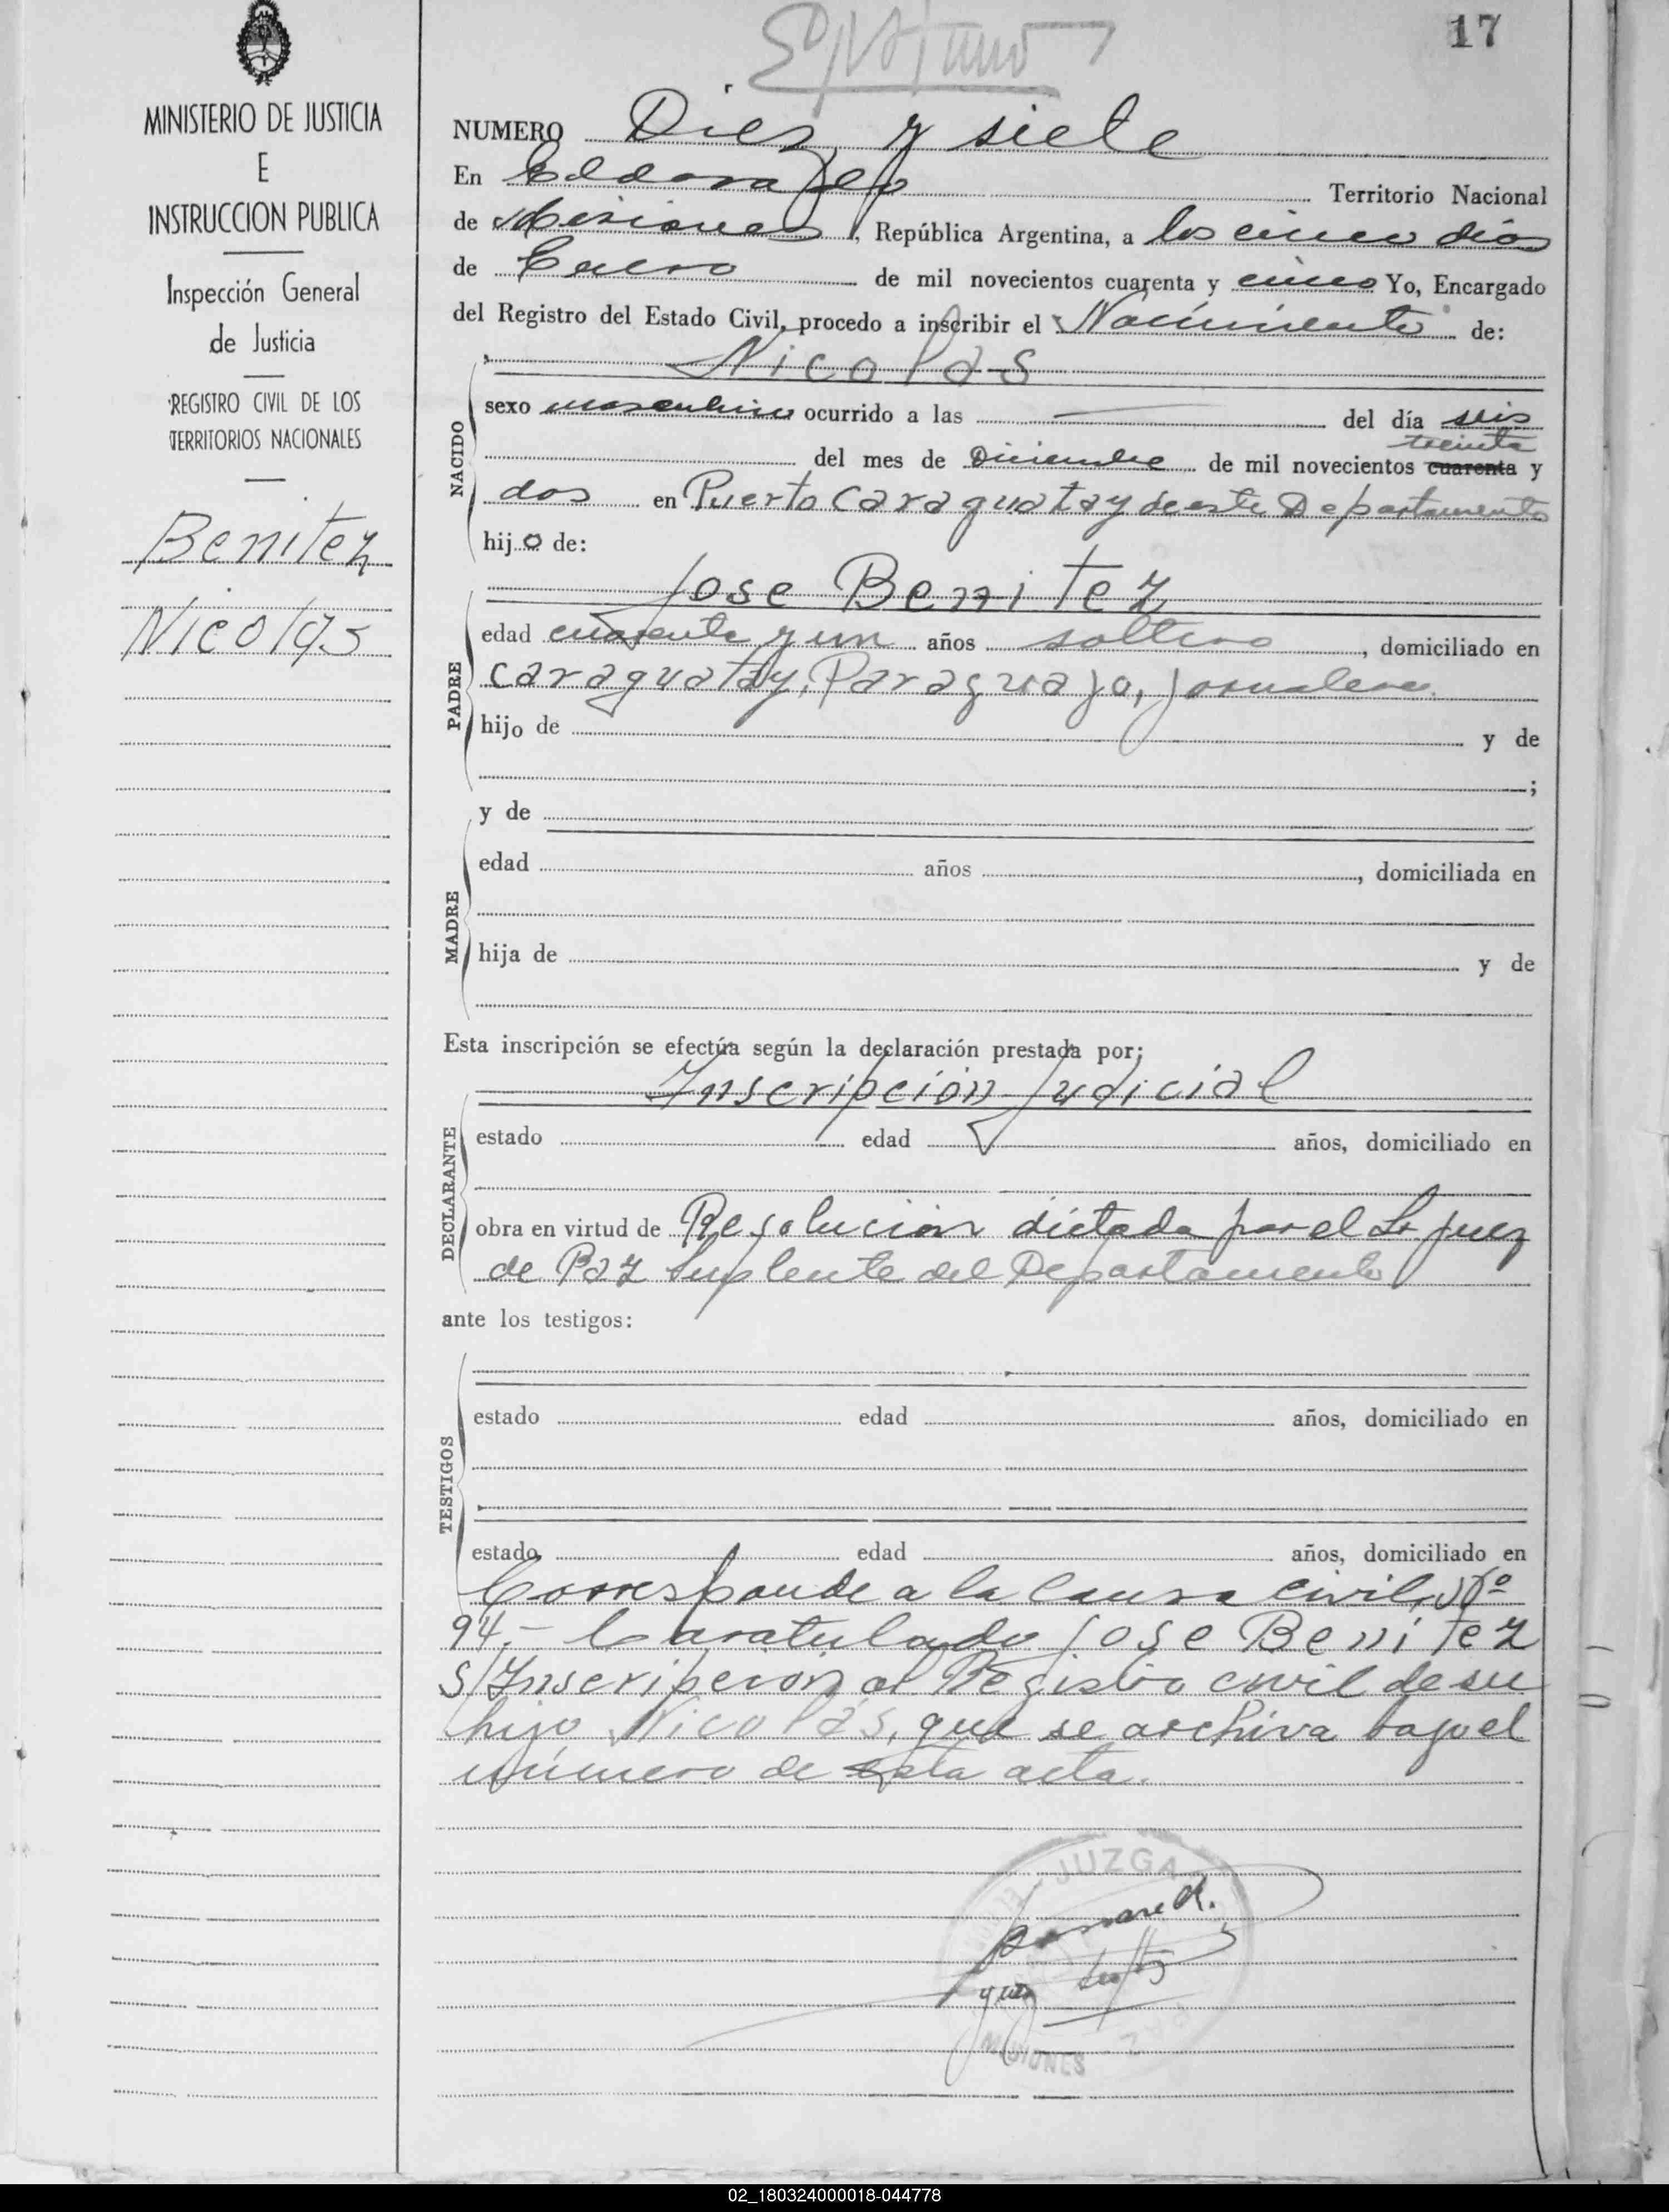 17
MINISTERIO DE JUSTICIA
E
INSTRUCCION PUBLICA
Inspección General
de Justicia
REGISTRO CIVIL DE LOS
TERRITORIOS NACIONALES
Benitez
Nicolás
NUMERO Diez y siete
En Eldorado Territorio Nacional
de Misiones, República Argentina, a los cinco días
de Enero de mil novecientos cuarenta y cinco Yo, Encargado
del Registro del Estado Civil, procedo a inscribir el Nacimiento de:
Nicolás
NACIDO
sexo masculino ocurrido a las — del día seis
treinta
del mes de Diciembre de mil novecientos cuarenta y
dos en Puerto Caraguatay de este Departamento
hijo de:
Jose Benitez
PADRE
edad cuarenta y un años soltero, domiciliado en
Caraguatay, Paraguayo, jornalero.
hijo de y de
;
y de
MADRE
edad años , domiciliada en
hija de y de
Esta inscripción se efectúa según la declaración prestada por;
Inscripción Judicial
DECLARANTE
estado edad años, domiciliado en
obra en virtud de Resolución dictada por el Sr juez
de Paz Suplente del Departamento
ante los testigos:
TESTIGOS
estado edad años, domiciliado en
estado edad años, domiciliado en
Corresponde a la Causa civil, Nº
94.- Caratulado Jose Benitez
S/Inscripción al Registro civil de su
hijo Nicolás, que se archiva bajo el
número de esta acta.
JUZGA
PAZ
MISIONES
02_180324000018-044778